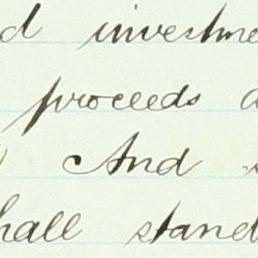 d investme
proceeds a
And s
hall stand